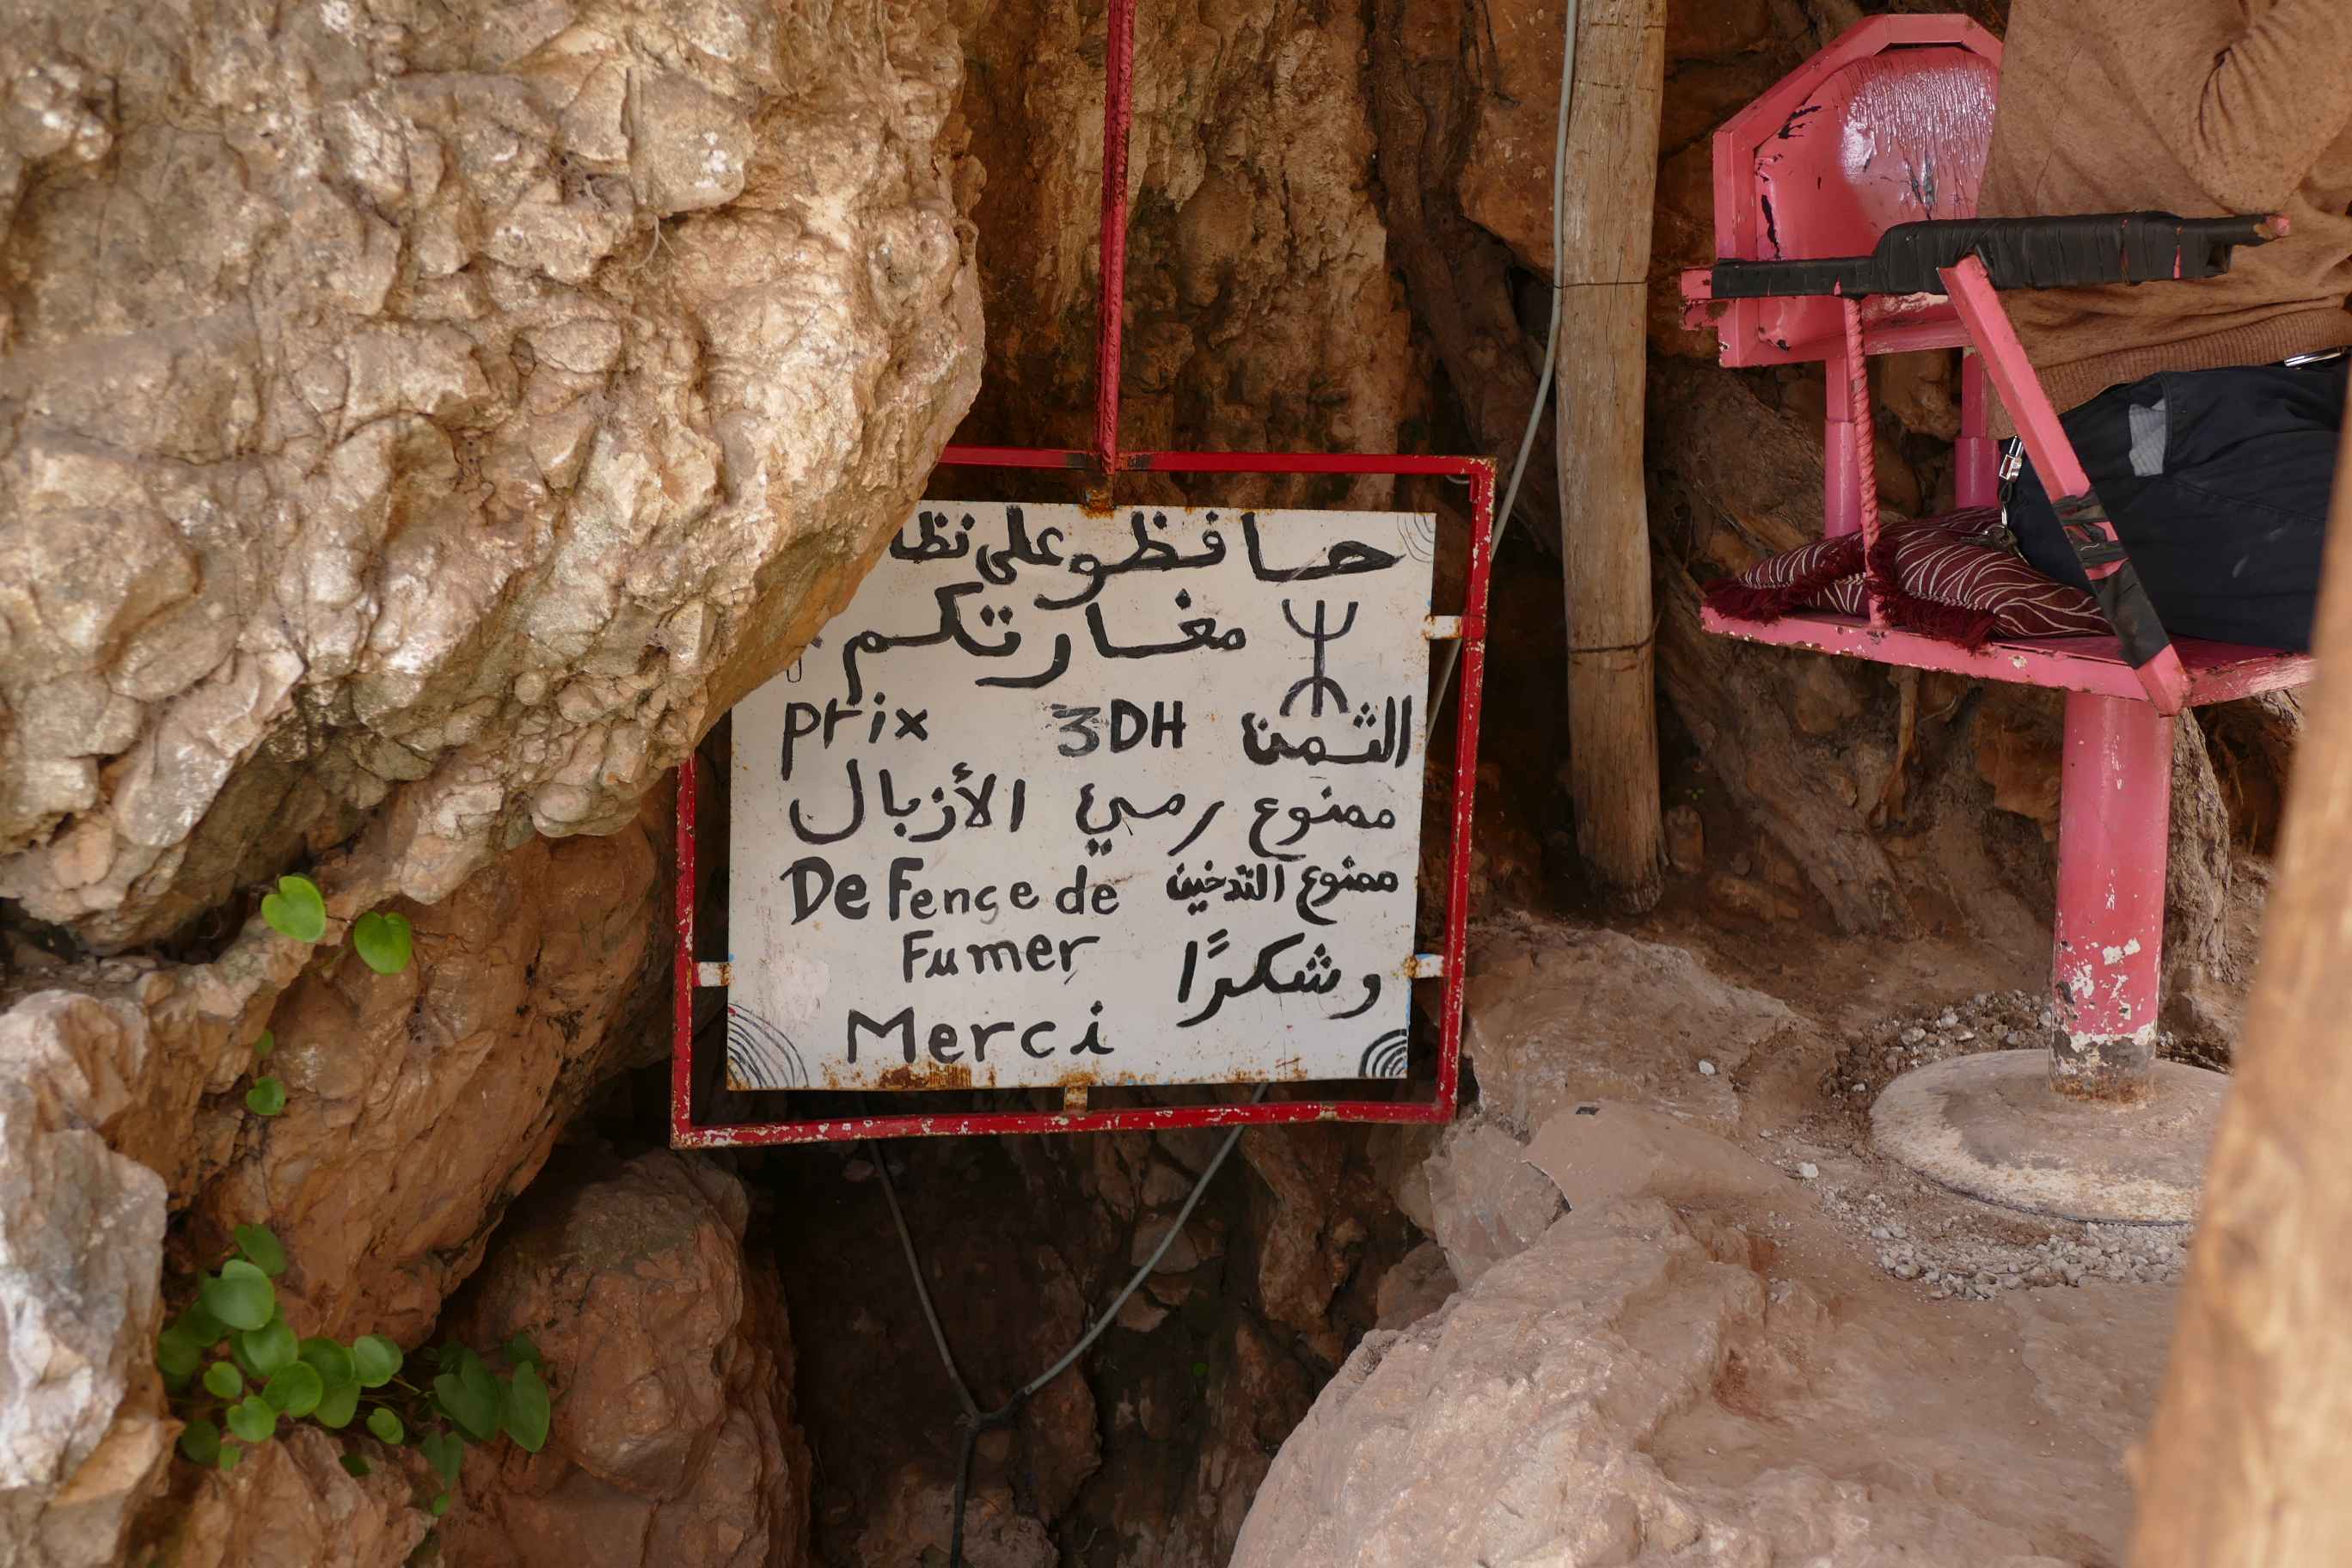 حافظو على
مغارتكم
prix 3DH الثمن
ممنوع رمي الأزبال
Defençe de ممنوع التدخين
Fumer وشكرًا
Merci